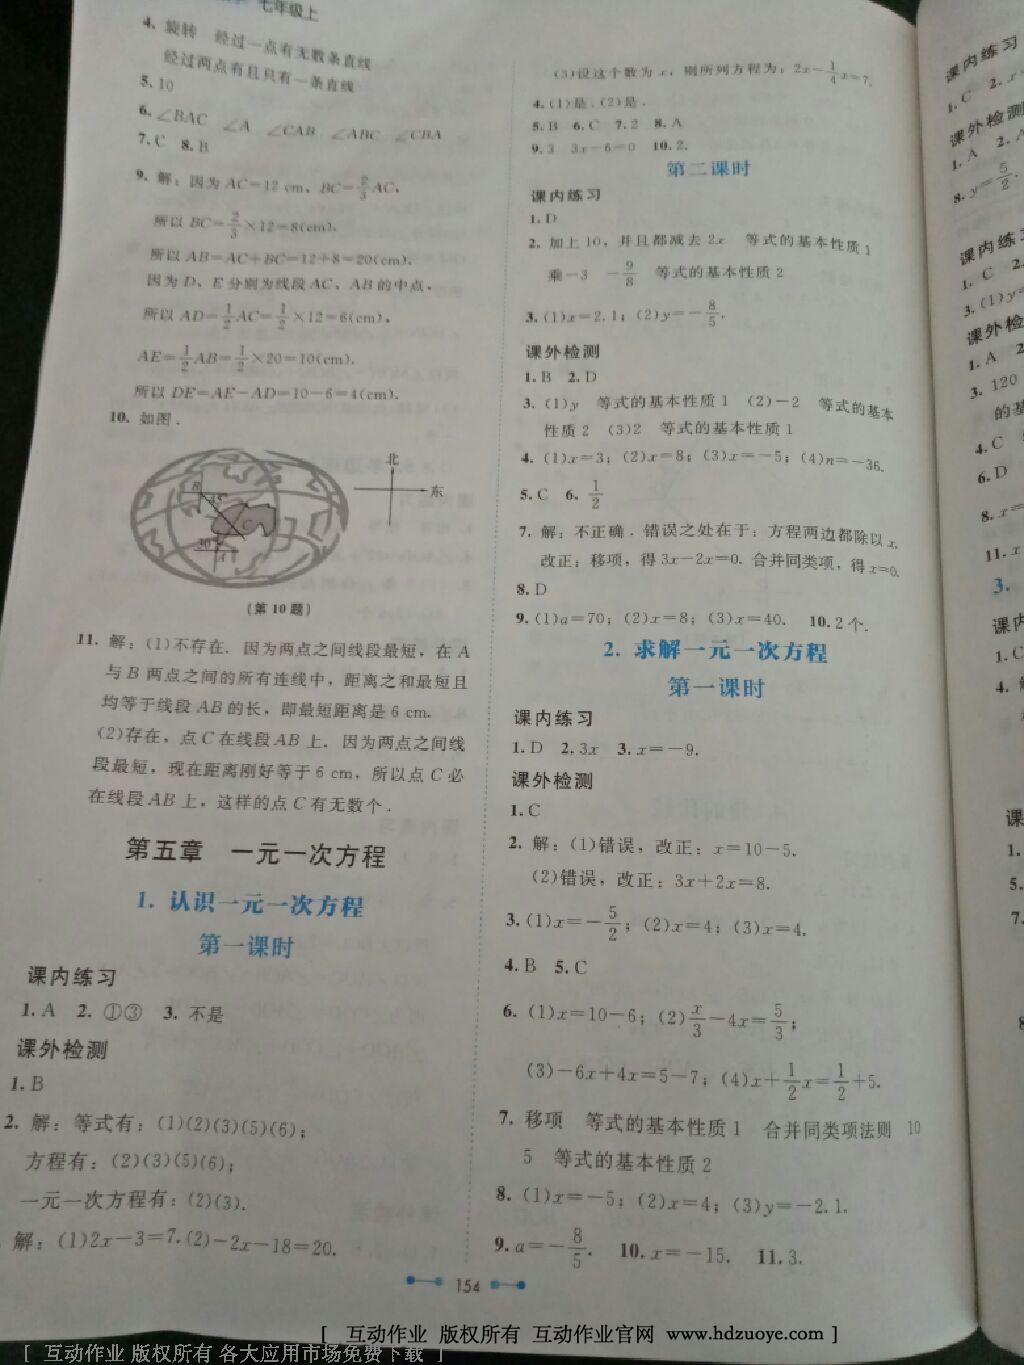 七年级上
4. 旋转 经过一点有无数条直线
经过两点有且只有一条直线
5. 10
6. ∠BAC ∠A ∠CAB ∠ABC ∠CBA
7. C 8. B
9. 解：因为 AC=12 cm，BC=2/3 AC，
所以 BC=2/3×12=8(cm).
所以 AB=AC+BC=12+8=20(cm).
因为 D、E 分别为线段 AC、AB 的中点，
所以 AD=1/2 AC=1/2×12=6(cm)，
AE=1/2 AB=1/2×20=10(cm).
所以 DE=AE-AD=10-6=4(cm).
10. 如图.
北
东
B
45°
C
30°
A
(第10题)
11. 解：(1)不存在. 因为两点之间线段最短，在 A
与 B 两点之间的所有连线中，距离之和最短且
均等于线段 AB 的长，即最短距离是 6 cm.
(2)存在，点 C 在线段 AB 上. 因为两点之间线
段最短，现在距离刚好等于 6 cm，所以点 C 必
在线段 AB 上，这样的点 C 有无数个.
第五章 一元一次方程
1. 认识一元一次方程
第一课时
课内练习
1. A 2. ①③ 3. 不是
课外检测
1. B
2. 解：等式有：(1)(2)(3)(5)(6)；
方程有：(2)(3)(5)(6)；
一元一次方程有：(2)(3).
解：(1)2x-3=7. (2)-2x-18=20.
(3)设这个数为 x，则所列方程为：2x-1/4x=7.
4. (1)是. (2)是.
5. B 6. C 7. 2 8. A
9. 3 3x-6=0 10. 2.
第二课时
课内练习
1. D
2. 加上 10，并且都减去 2x 等式的基本性质 1
乘-3 -9/8 等式的基本性质 2
3. (1)x=2.1；(2)y=-8/5.
课外检测
1. B 2. D
3. (1)y 等式的基本性质 1 (2)-2 等式的基本
性质 2 (3)2 等式的基本性质 1
4. (1)x=3；(2)x=8；(3)x=-5；(4)n=-36.
5. C 6. 1/2
7. 解：不正确. 错误之处在于：方程两边都除以 x.
改正：移项，得 3x-2x=0. 合并同类项，得 x=0.
8. D
9. (1)a=70；(2)x=8；(3)x=40. 10. 2个.
2. 求解一元一次方程
第一课时
课内练习
1. D 2. 3x 3. x=-9.
课外检测
1. C
2. 解：(1)错误，改正：x=10-5.
(2)错误，改正：3x+2x=8.
3. (1)x=-5/2；(2)x=4；(3)x=4.
4. B 5. C
6. (1)x=10-6；(2)x/3-4x=5/3；
(3)-6x+4x=5-7；(4)x+1/2x=1/2+5.
7. 移项 等式的基本性质 1 合并同类项法则 10
5 等式的基本性质 2
8. (1)x=-5；(2)x=4；(3)y=-2.1.
9. a=-8/5. 10. x=-15. 11. 3.
154
课内练习
1. C 2. x
课外检测
1. A 2. A
8. y=5/2.
课内练习
1. C 2.
3. (1)y=
课外检
1. A 2
3. 120
的基
4. C
6. D
8. x=
11. x
3.
课内
1. C
4. 解
课
1.
5.
7.
8
[ 互动作业 版权所有 互动作业官网 www.hdzuoye.com ]
[ 互动作业 版权所有 各大应用市场免费下载 ]